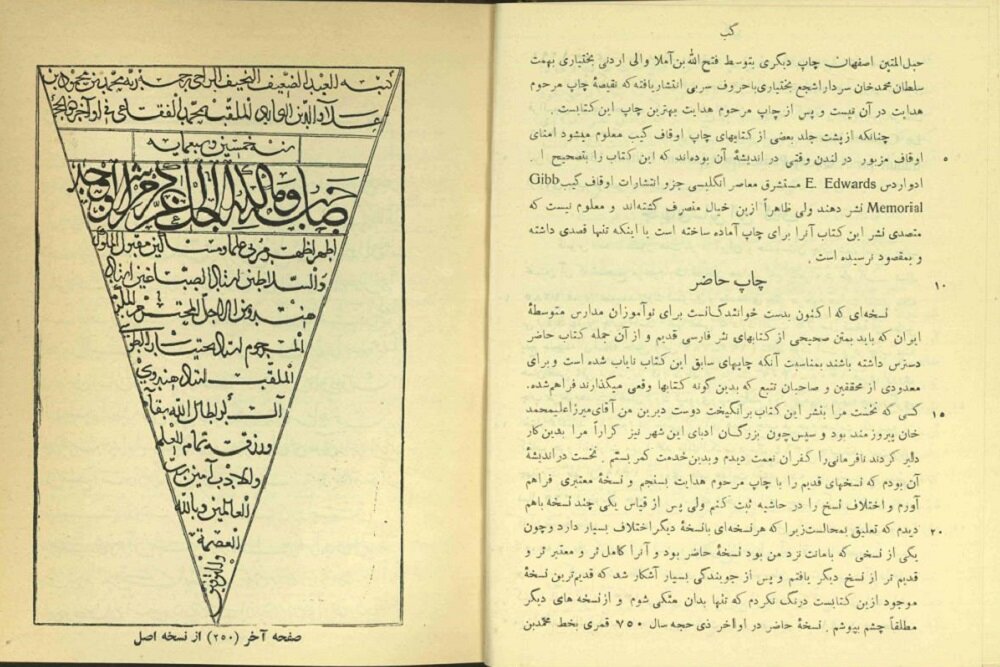 کب
حبل‌المتین اصفهان چاپ دیگری بتوسط فتح‌الله‌بن‌آملا والی اردنی بختیاری بهمت
سلطان‌محمدخان سردار اشجع بختیاری باحروف سربی انتشاریافته‌که نقیصهٔ چاپ مرحوم
هدایت در آن نیست و پس از چاپ مرحوم هدایت بهترین چاپ این‌کتابست .
چنانکه ازپشت جلد بعضی از کتابهای چاپ اوقاف کیب معلوم میشود امنای
۵ اوقاف مزبور در لندن وقتی در اندیشهٔ آن بوده‌اند که این کتاب را بتصحیح ا .
ادواردس E. Edwards مستشرق معاصر انگلیسی جزو انتشارات اوقاف کیب Gibb
Memorial نشر دهند ولی ظاهراً ازین خیال منصرف گشته‌اند و معلوم نیست که
متصدی نشر این کتاب آنرا برای چاپ آماده ساخته است یا اینکه تنها قصدی داشته
و بمقصود نرسیده است .
۱۰ چاپ حاضر
نسخه‌ای که اکنون بدست خوانندگانست برای نوآموزان مدارس متوسطهٔ
ایران که باید بمتن صحیحی از کتابهای نثر فارسی قدیم و از آن جمله کتاب حاضر
دسترس داشته باشند بمناسبت آنکه چاپهای سابق این‌کتاب نایاب شده است و برای
معدودی از محققین و صاحبان تتبع که بدین گونه کتابها وقعی میگذارند فراهم‌شده.
۱۵ کسی که نخست مرا بنشر این کتاب برانگیخت دوست دیرین من آقای‌میرزاعلیمحمد
خان پیروزمند بود و سپس چون بزرگان ادبای این شهر نیز کراراً مرا بدین‌کار
دلیر کردند نافرمانی‌را کفران نعمت دیدم و بدین‌خدمت کمر بستم . نخست دراندیشهٔ
آن بودم که نسخهای قدیم را با چاپ مرحوم هدایت بسنجم و نسخهٔ معتبری فراهم
آورم و اختلاف نسخ را در حاشیه ثبت کنم ولی پس از قیاس یکی چند نسخه باهم
۲۰ دیدم که تعلیق بمحالست‌زیرا که هرنسخه‌ای بانسخهٔ دیگر اختلاف بسیار دارد و چون
یکی از نسخی که بامانت نزد من بود نسخهٔ حاضر بود و آنرا کامل‌تر و معتبر تر و
قدیم تر از نسخ دیگر یافتم و پس از جویندگی بسیار آشکار شد که قدیم‌ترین نسخهٔ
موجود ازین کتابست درنگ نکردم که تنها بدان متکی شوم و ازنسخه های دیگر
مطلقاً چشم بپوشم . نسخهٔ حاضر در اواخر ذی حجه سال ۷۵۰ قمری بخط محمدبن
کتبه العبد الضعیف النحیف الراجی رحمة ربه محمد بن محمود بن
الملقب فی اواخر ذی الحجة
سنه خمسین و سبعمایه
والسلاطین استاد الصباغین استاد
المرحوم استاد
الملقب استاد
اطال الله بقاه
ورزقه تمام العلم
والادب آمین رب
العالمین وبالله
العصمة
والتوفیق
صفحه آخر (۲۵۰) از نسخه اصل